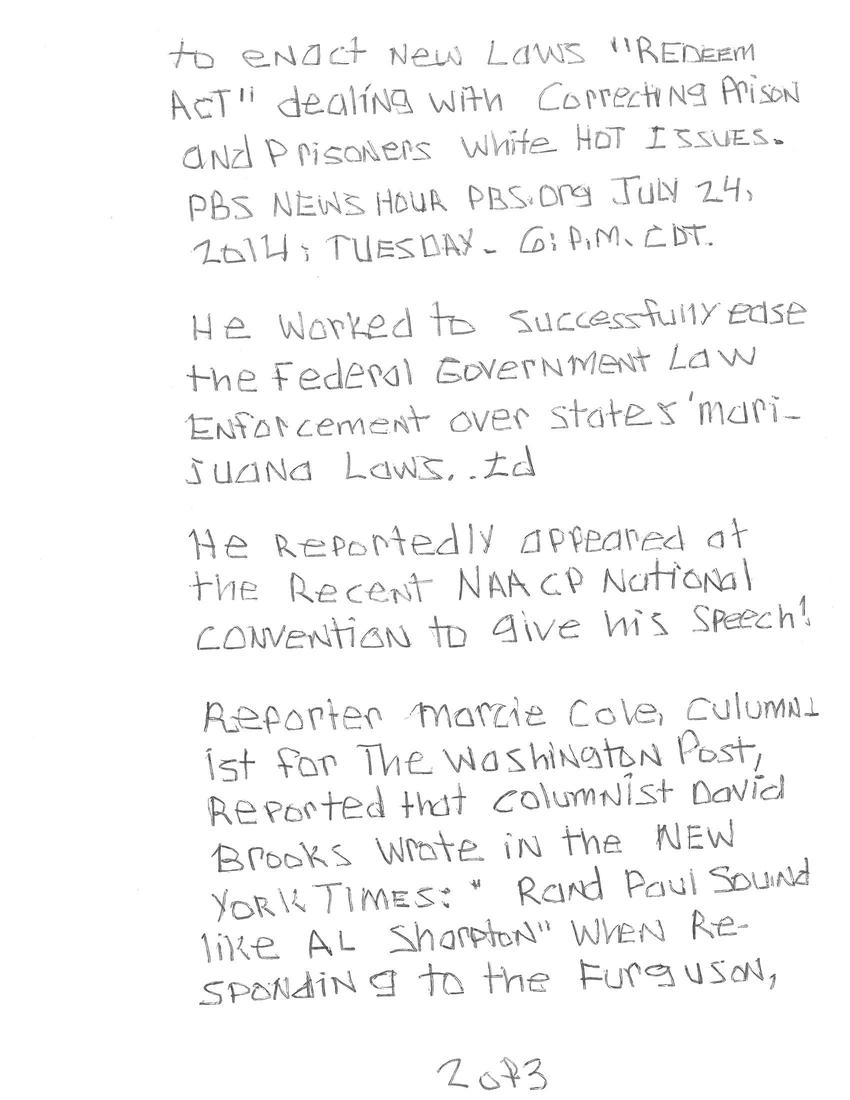 to enact New Laws "REDEEM
ACT" dealing with Correcting Prison
and Prisoners white HOT ISSUES.
PBS NEWS HOUR PBS.org JULY 24,
2014; TUESDAY. 6: P.M. CDT.
He worked to successfully ease
the Federal Government Law
Enforcement over states' mari-
juana Laws. . Id
He Reportedly appeared at
the Recent NAACP National
CONVENTION to give his speech!
Reporter marcie Cole, culumn-
ist for The Washington Post,
Reported that columnist David
Brooks wrote in the NEW
YORK TIMES: " Rand Paul Sound
like AL Sharpton" when Re-
sponding to the Furguson,
2 of 3